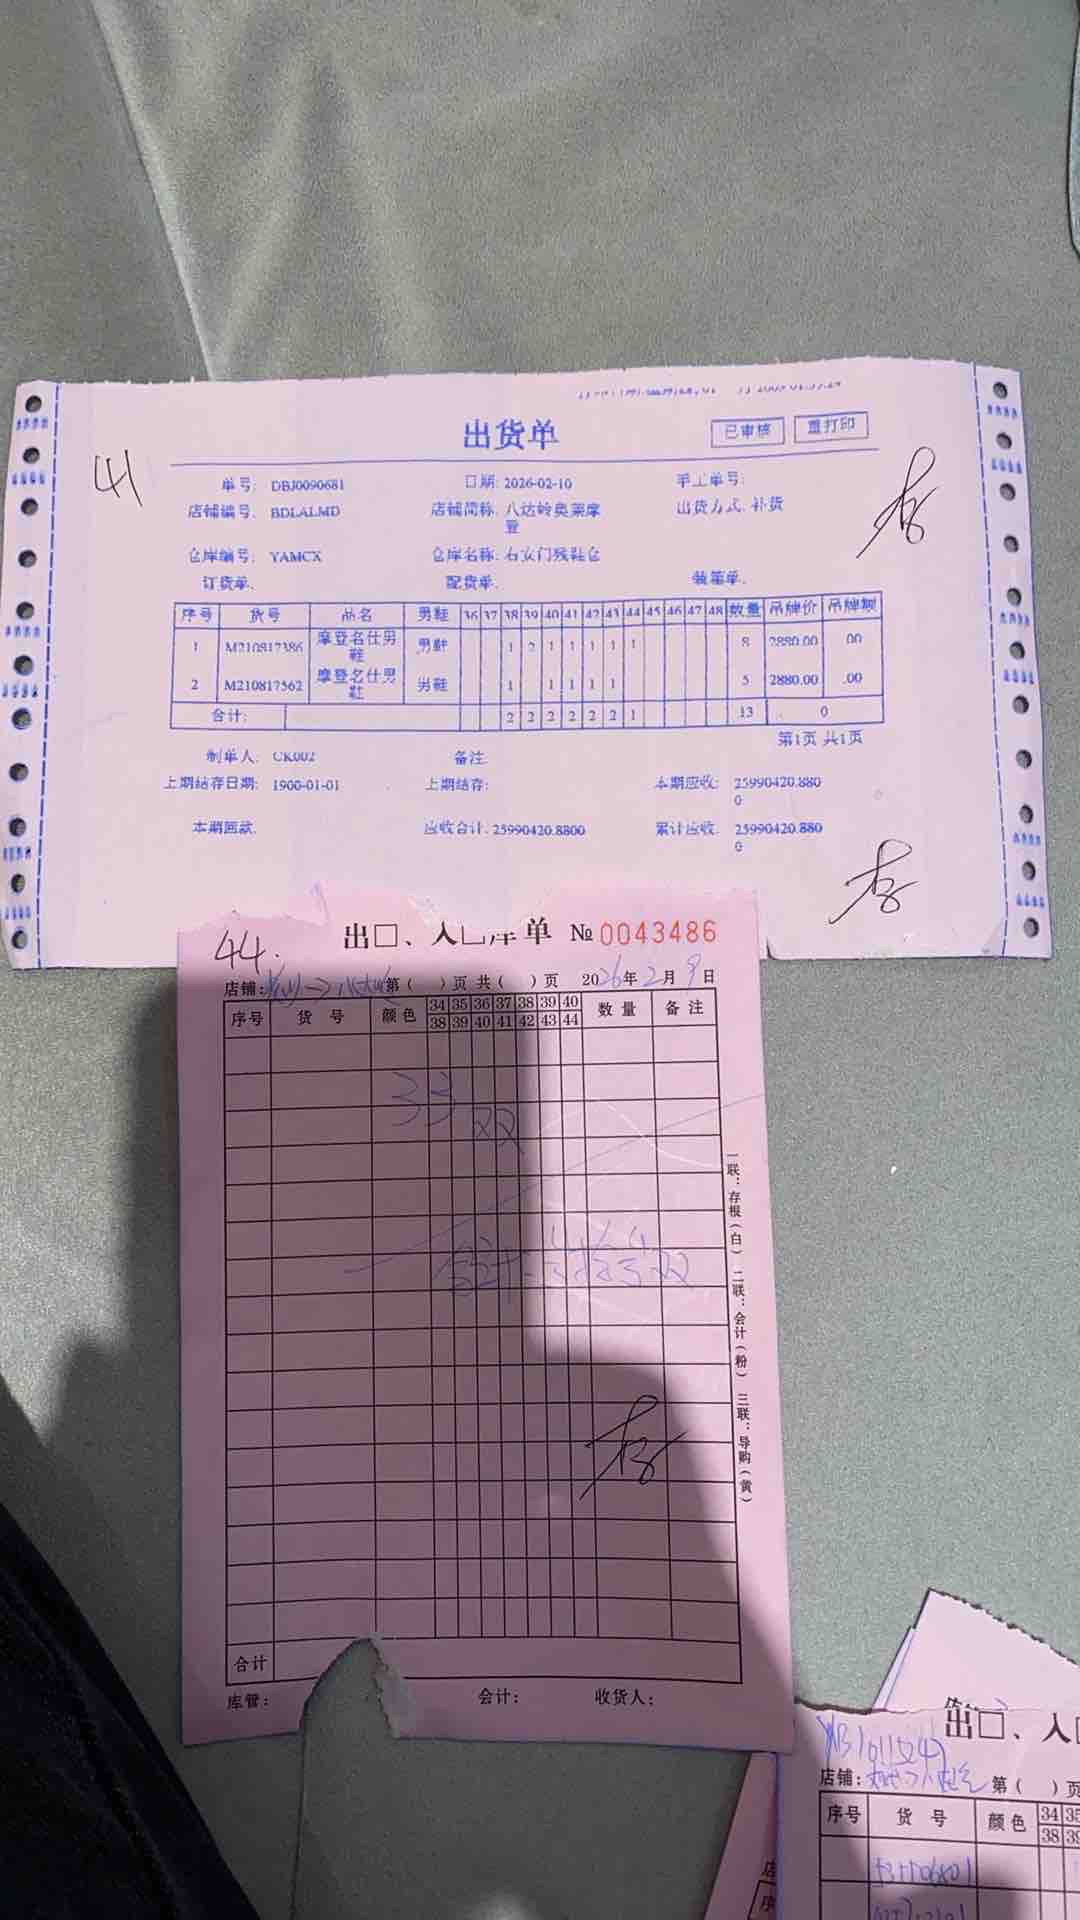 出货单
已审核 重打印
41
存
单号: DBJ0090681 日期: 2026-02-10 手工单号:
店铺编号: BDLALMD 店铺简称: 八达岭奥莱摩登 出货方式: 补货
仓库编号: YAMCX 仓库名称: 右安门残鞋仓
订货单: 配货单: 装箱单:
序号 货号 品名 男鞋 36 37 38 39 40 41 42 43 44 45 46 47 48 数量 吊牌价 吊牌额
1 M210817386 摩登名仕男鞋 男鞋 1 2 1 1 1 1 1 8 2880.00 .00
2 M210817562 摩登名仕男鞋 男鞋 1 1 1 1 1 5 2880.00 .00
合计: 2 2 2 2 2 2 1 13 0
第1页 共1页
制单人: CK002 备注:
上期结存日期: 1900-01-01 上期结存: 本期应收: 25990420.8800
本期回款: 应收合计: 25990420.8800 累计应收: 25990420.8800
存
44.
出□、入□库单 № 0043486
店铺: 第( )页 共( )页 2026年2月9日
序号 货号 颜色 34 35 36 37 38 39 40 数量 备注
38 39 40 41 42 43 44
双
合计:
存
一联:存根(白) 二联:会计(粉) 三联:导购(黄)
合计
库管: 会计: 收货人:
出□、入
店铺: 第( )页
序号 货号 颜色 34 35
38 39